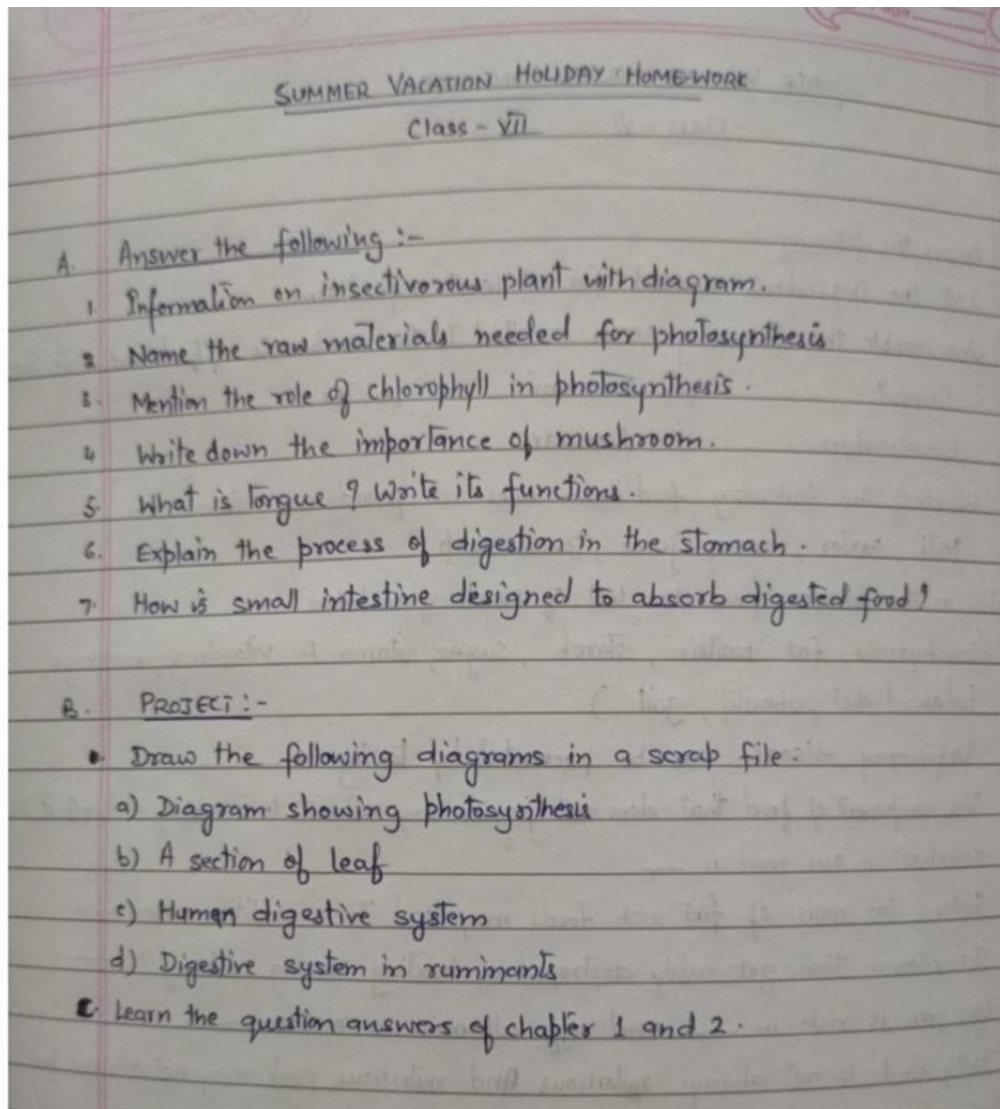 SUMMER VACATION HOLIDAY HOMEWORK
Class - VII
A. Answer the following :-
1. Information on insectivorous plant with diagram.
2 Name the raw materials needed for photosynthesis
3. Mention the role of chlorophyll in photosynthesis.
4 Write down the importance of mushroom.
5. What is Tongue ? Write its functions.
6. Explain the process of digestion in the stomach.
7. How is small intestine designed to absorb digested food ?
B. PROJECT :-
• Draw the following diagrams in a scrap file.
a) Diagram showing photosynthesis
b) A section of leaf
c) Human digestive system
d) Digestive system in ruminants
C Learn the question answers of chapter 1 and 2.